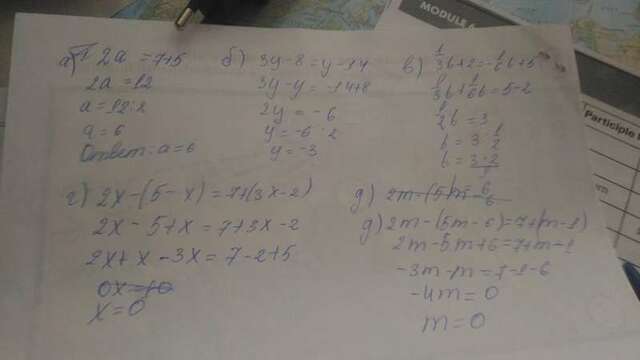 MODULE
Participle
а) 2a = 7+5
2a = 12
a = 12:2
a = 6
Ответ: a = 6
б) 3y-8 = y-14
3y-y = -14+8
2y = -6
y = -6:2
y = -3
в) 1/3b+2=-1/6b+5
1/3b+1/6b=5-2
1/2b = 3
b = 3:1/2
b = 3·2/1
г) 2x-(5-x)=7+(3x-2)
2x-5+x=7+3x-2
2x+x-3x=7-2+5
0x=10
x=0
д) 2m-(5m-6
д) 2m-(5m-6)=7+(m-1)
2m-5m+6=7+m-1
-3m-m=7-1-6
-4m=0
m=0